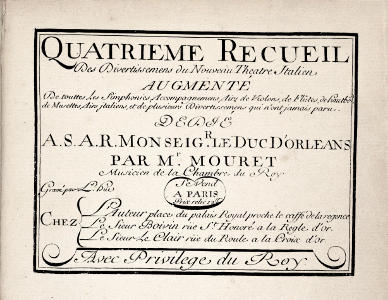 QUATRIEME RECUEIL
Des Divertissemens du Nouveau Theatre Italien,
AUGMENTÉ
De touttes les Simphonies, Accompagnemens, Airs de Violons, de Flûtes, de Hautb.
de Musettes, Airs italiens, et de plusieurs Divertissemens qui n'ont jamais paru.
DEDIÉ
A.S.A.R. MONSEIG.R LE DUC D'ORLEANS
PAR M.r MOURET
Musicien de la Chambre du Roy
Se Vend
Gravé par L.
A PARIS
Prix relié
CHEZ
L'Auteur place du palais Royal proche le caffé de la regence
Le Sieur Boivin rue S.t Honoré a la Regle d'or.
Le Sieur Le Clair rue du Roule a la Croix d'or
Avec Privilege du Roy